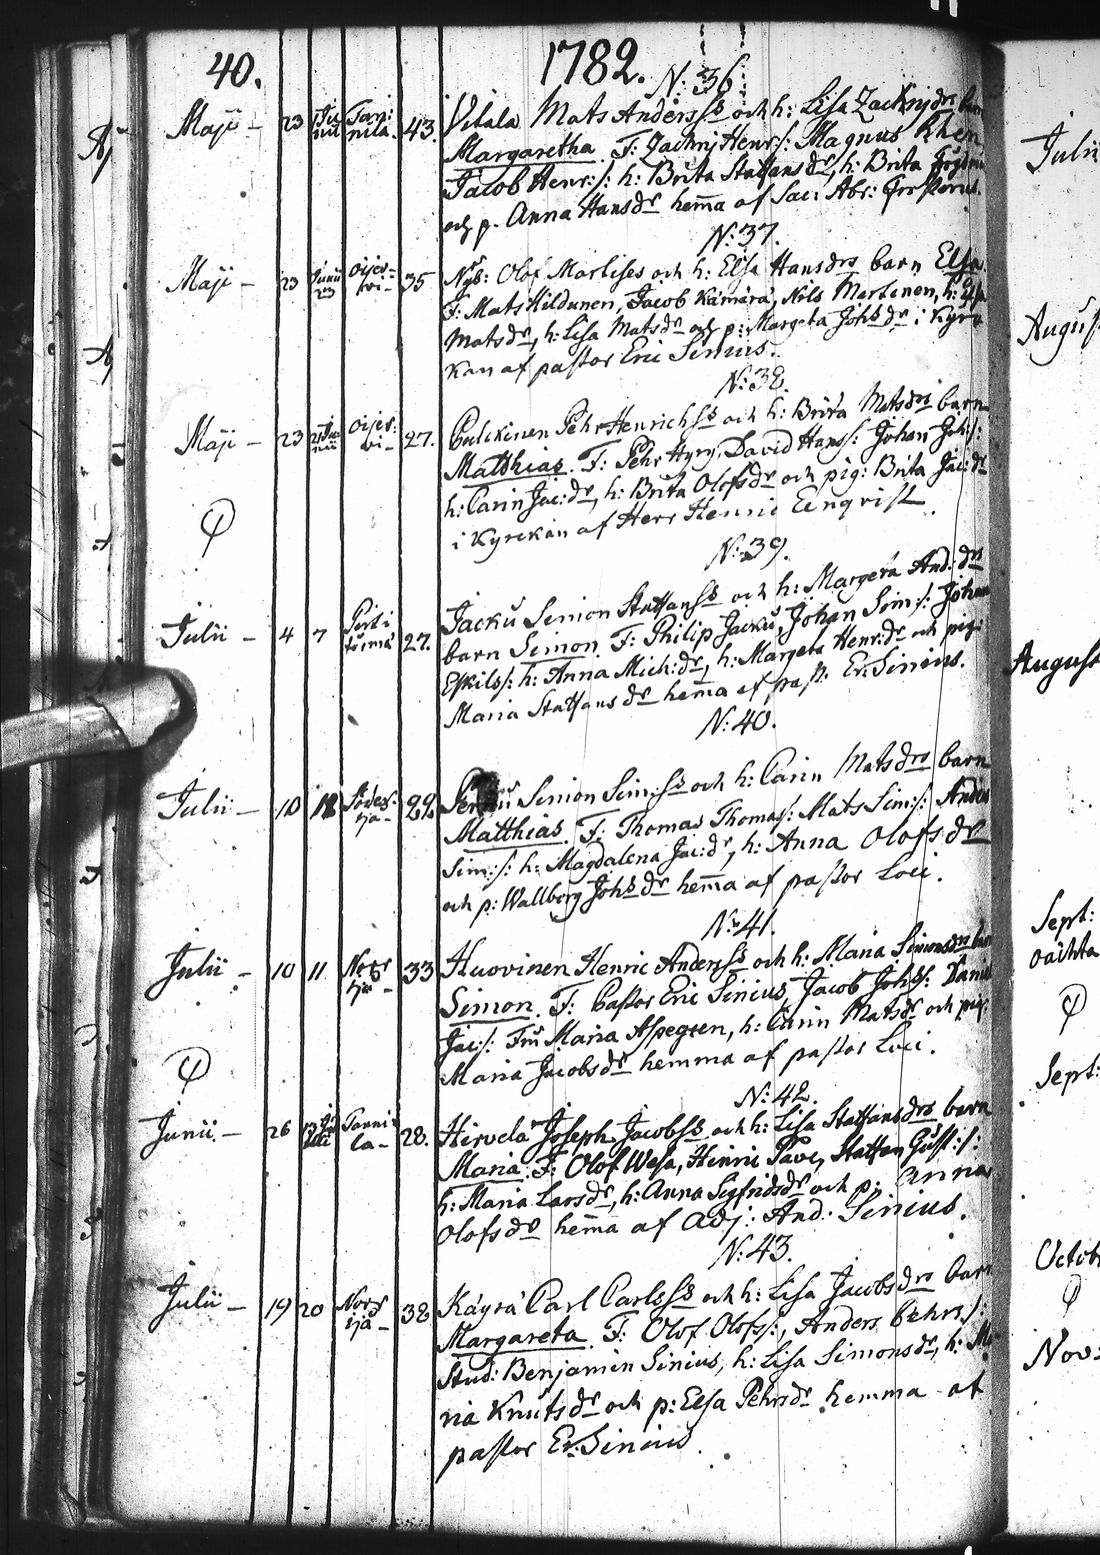 40. 1782.
N: 36.
Maji - 23 Junii Tan: nila 43. Vilala Mats Anderss: och h: Lisa Zachrjdrs barn
Margaretha. F: Zachrj Henr:s: Magnus
Jacob Henr:s: h: Brita Staffansdr, h: Brita
och p. Anna Hansdr hema af Sac: Abr: Frosterus.
N: 37.
Maji - 23 Junii 23 Oijer- vi- 35 Nyb: Olof Marlises och h: Elsa Hansdrs barn Elsa
F: Mats Hildunen, Jacob Kämärä, Nils Martenen, h: Elsa
Matsdr, h: Lisa Matsdr och p: Margeta Johsdr i Kyrc
kan af pastor Eric Sinius.
N: 38.
Maji - 23 Junii Oijer- vi- 27. Pulckinen Pehr Henrichss och h: Brita Matsdrs barn
Matthias. F: Pehr Hyry, David Hanss: Johan Joh:s:
h: Carin Jac:dr, h: Brita Olofsdr och pig: Brita Jac:dr
i Kyrckan af Herr Henric Elnqvist.
N: 39.
Julii - 4 7 27. Jacku Simon Staffanss och h: Margeta And:drs
barn Simon. F: Philip Jacku, Johan Sim:s: Johan
Eskils: h: Anna Mich:dr, h: Margeta Henr:dr och pig:
Maria Staffansdr hema af past. Er: Sinius.
N: 40.
Julii - 10 Söder- ijä- 29 Simon Sim:ss och h: Carin Matsdrs barn
Matthias. F: Thomas Thomas: Mats Sim:s: Anders
Sim:s: h: Magdalena Jac:dr, h: Anna Olofsdr
och p: Wallborg Johsdr hema af pastor Loci.
N: 41.
Julii - 10 11 Norr ijä- 33 Huovinen Henric Anderss och h: Maria Simonsdrs barn
Simon. F: Pastor Eric Sinius, Jacob Johs: Daniel
Jac:s: Fru Maria Aspegren, h: Carin Matsdr och pig:
Maria Jacobsdr hemma af pastor Loci.
N: 42.
Junii - 26 13 Julii Tanni la- 28. Hirvelä Joseph Jacobss och h: Lisa Staffansdrs barn
Maria. F: Olof Wesa, Henric Pave, Staffan Gust:s:
h: Maria Larsdr, h: Anna Sigfridsdr och p: Anna
Olofsdr hema af Adj: And: Sinius.
N: 43.
Julii - 19 20 Norr ijä- 38 Käyrä Carl Carlsss och h: Lisa Jacobsdrs barn
Margareta. F: Olof Olofs:, Anders Pehrs:
Stud: Benjamin Sinius, h: Lisa Simonsdr, h: Ma
ria Knutsdr och p: Elsa Pehrsdr hemma af
pastor Er: Sinius.
Julii
August
August
Sept:
Sept:
Octob
Nov: